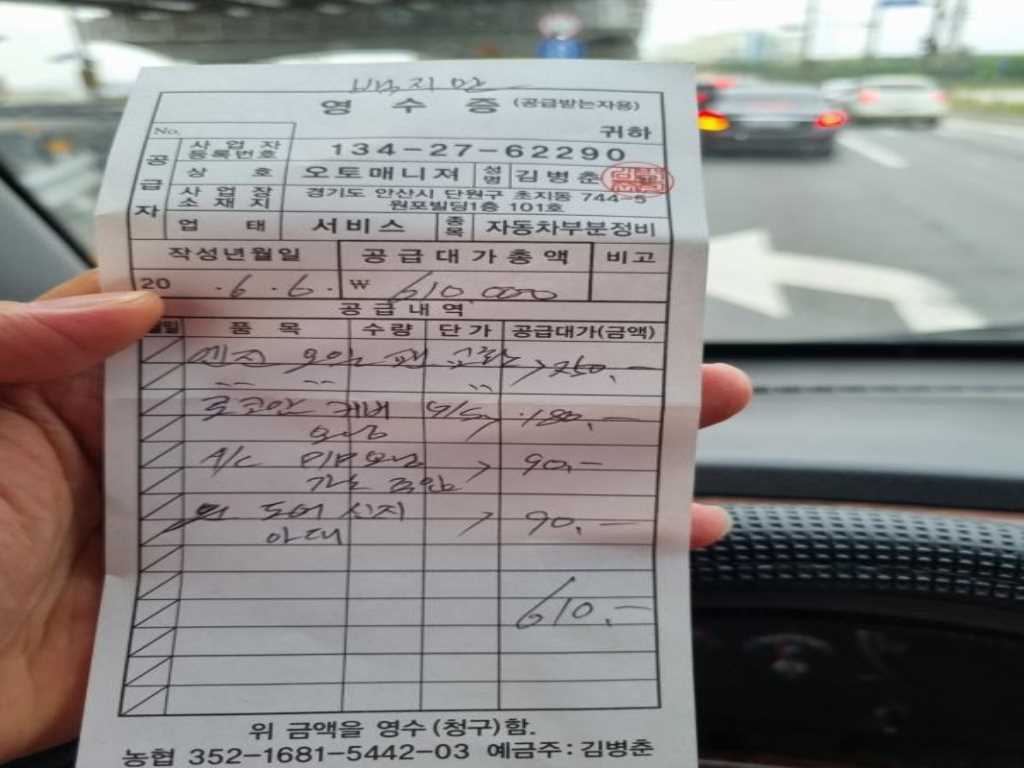 백지만
영 수 증 (공급받는자용)
No. 귀하
공급자
사업자등록번호 134-27-62290
상호 오토매니져 성명 김병춘
사업장소재지 경기도 안산시 단원구 초지동 744-5 원포빌딩1층 101호
업태 서비스 종목 자동차부분정비
작성년월일 공급대가총액 비고
20 .6.6. ₩ 610 000
공급내역
월일 품목 수량 단가 공급대가(금액)
엔진 오일 팬 교환 > 250,-
로코안 커버 > 180,-
A/C > 90,-
도어
> 90,-
610,-
위 금액을 영수(청구)함.
농협 352-1681-5442-03 예금주: 김병춘